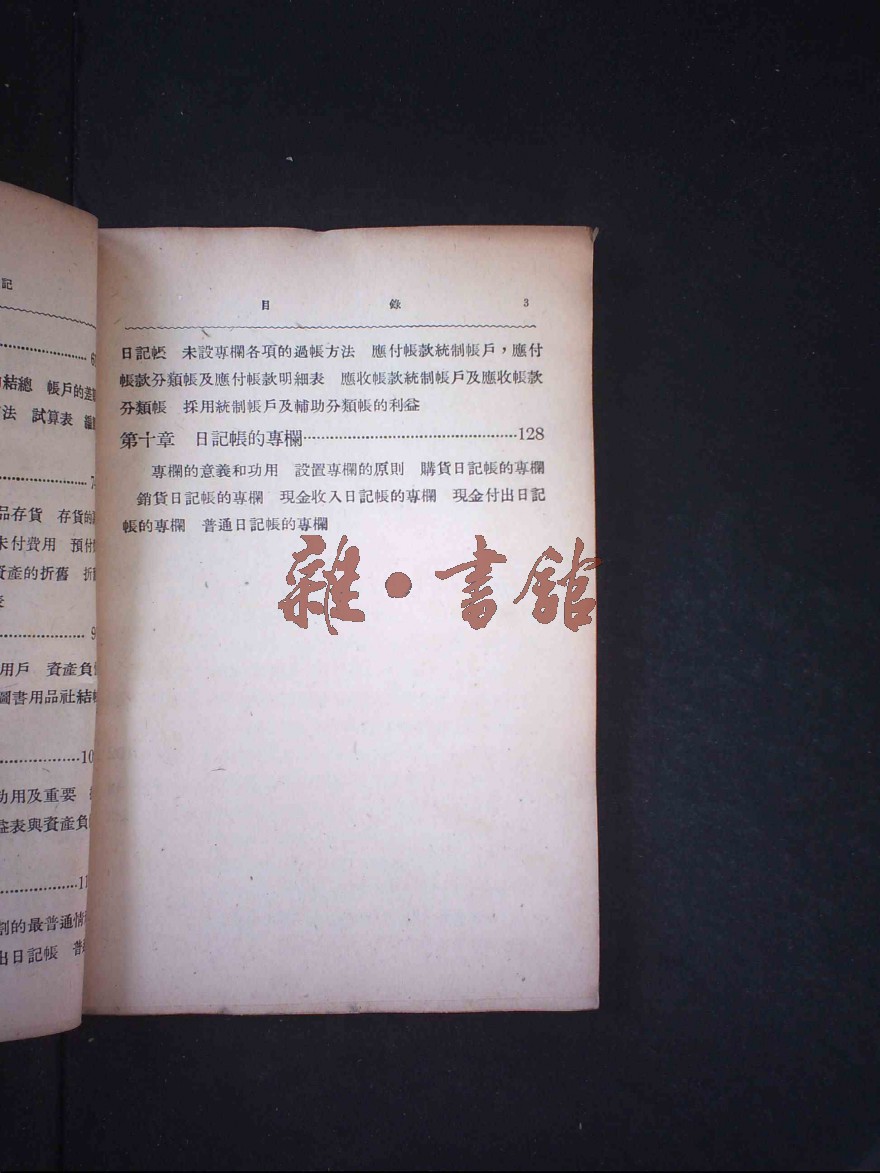 記
6
結總 帳戶的差
法 試算表
7
品存貨 存貨的
未付費用 預付
資產的折舊 折
9
用戶 資產負
圖書用品社結帳
10
功用及重要
益表與資產負
11
割的最普通情
出日記帳 普
目 錄 3
日記帳 未設專欄各項的過帳方法 應付帳款統制帳戶，應付
帳款分類帳及應付帳款明細表 應收帳款統制帳戶及應收帳款
分類帳 採用統制帳戶及輔助分類帳的利益
第十章 日記帳的專欄……………………………………128
專欄的意義和功用 設置專欄的原則 購貨日記帳的專欄
銷貨日記帳的專欄 現金收入日記帳的專欄 現金付出日記
帳的專欄 普通日記帳的專欄
雜·書館